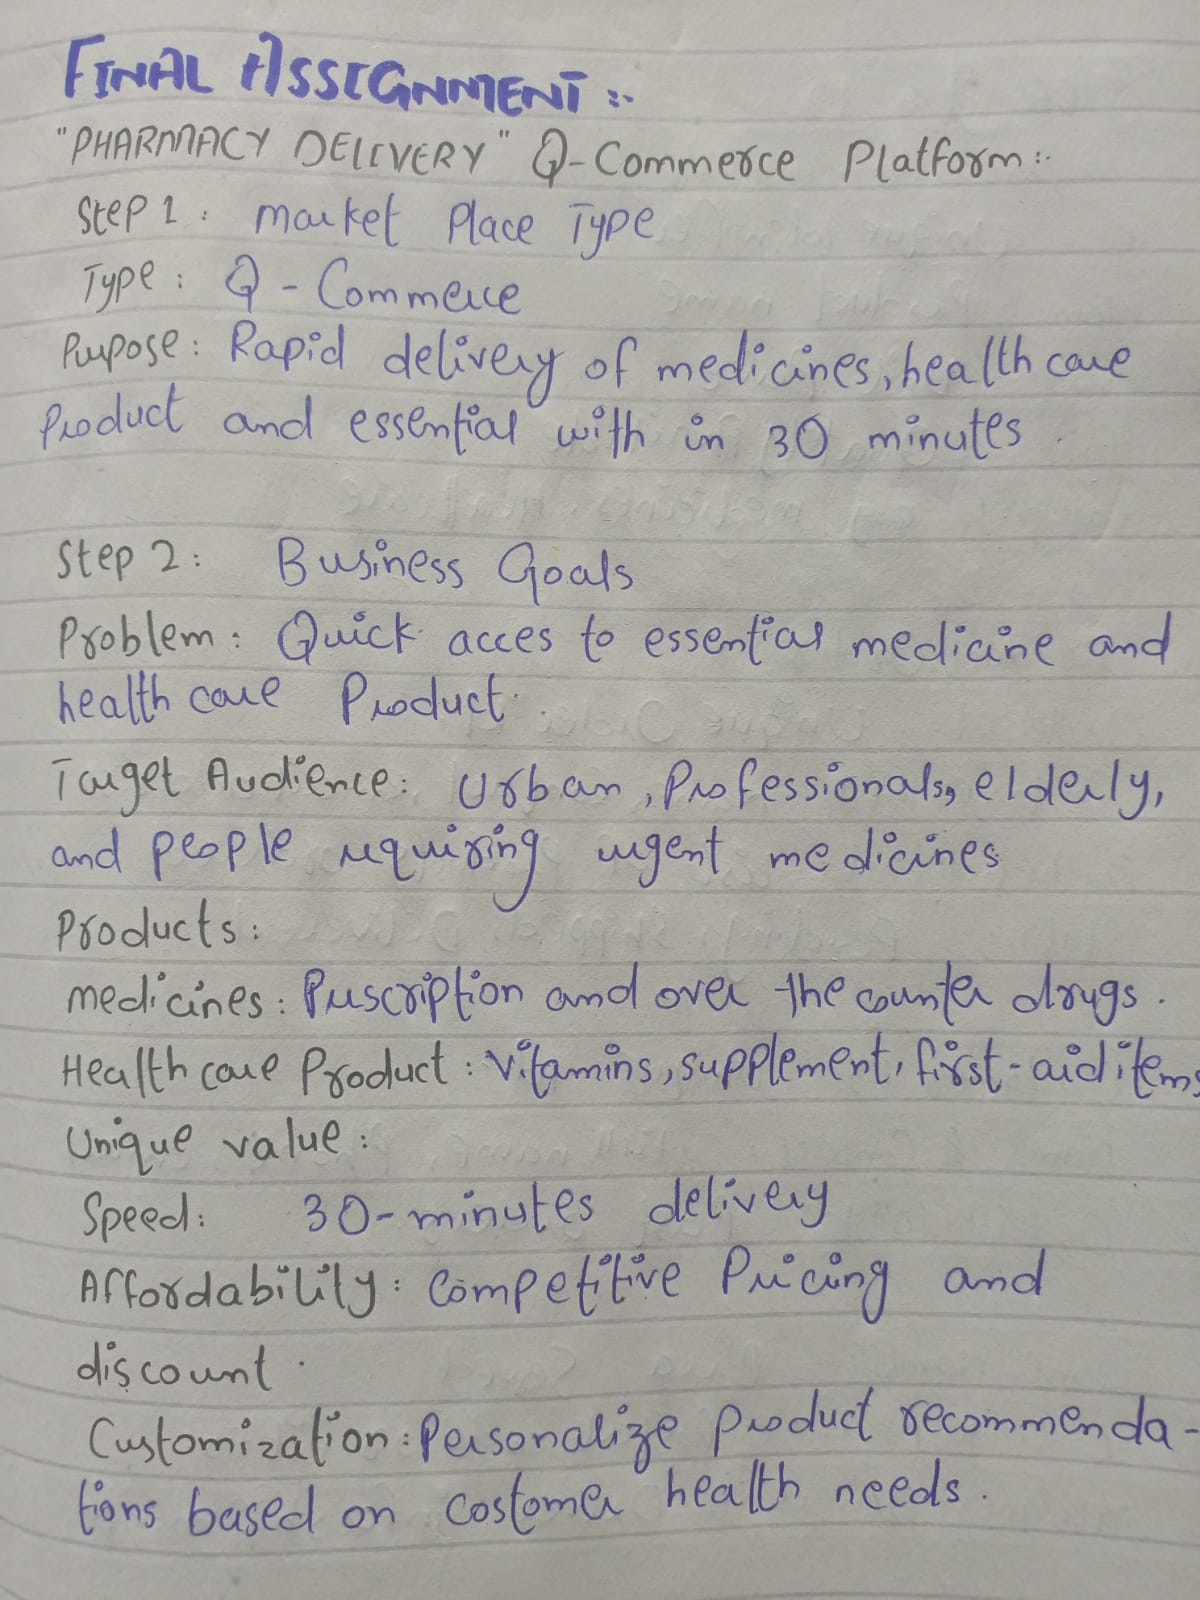 FINAL ASSIGNMENT :-
"PHARMACY DELIVERY" Q-Commerce Platform :-
Step 1 : Market Place Type
Type : Q - Commerce
Purpose : Rapid delivery of medicines, health care
Product and essential with in 30 minutes .
Step 2 : Business Goals
Problem : Quick acces to essential medicine and
health care Product .
Target Audience : Urban , Professionals, elderly,
and people requiring urgent medicines
Products :
medicines : Prescription and over the counter drugs .
Health care Product : Vitamins, supplement, first-aid items
Unique value :
Speed : 30-minutes delivery
Affordability : Competitive Pricing and
discount .
Customization : Personalize Product recommenda-
tions based on costomer health needs .